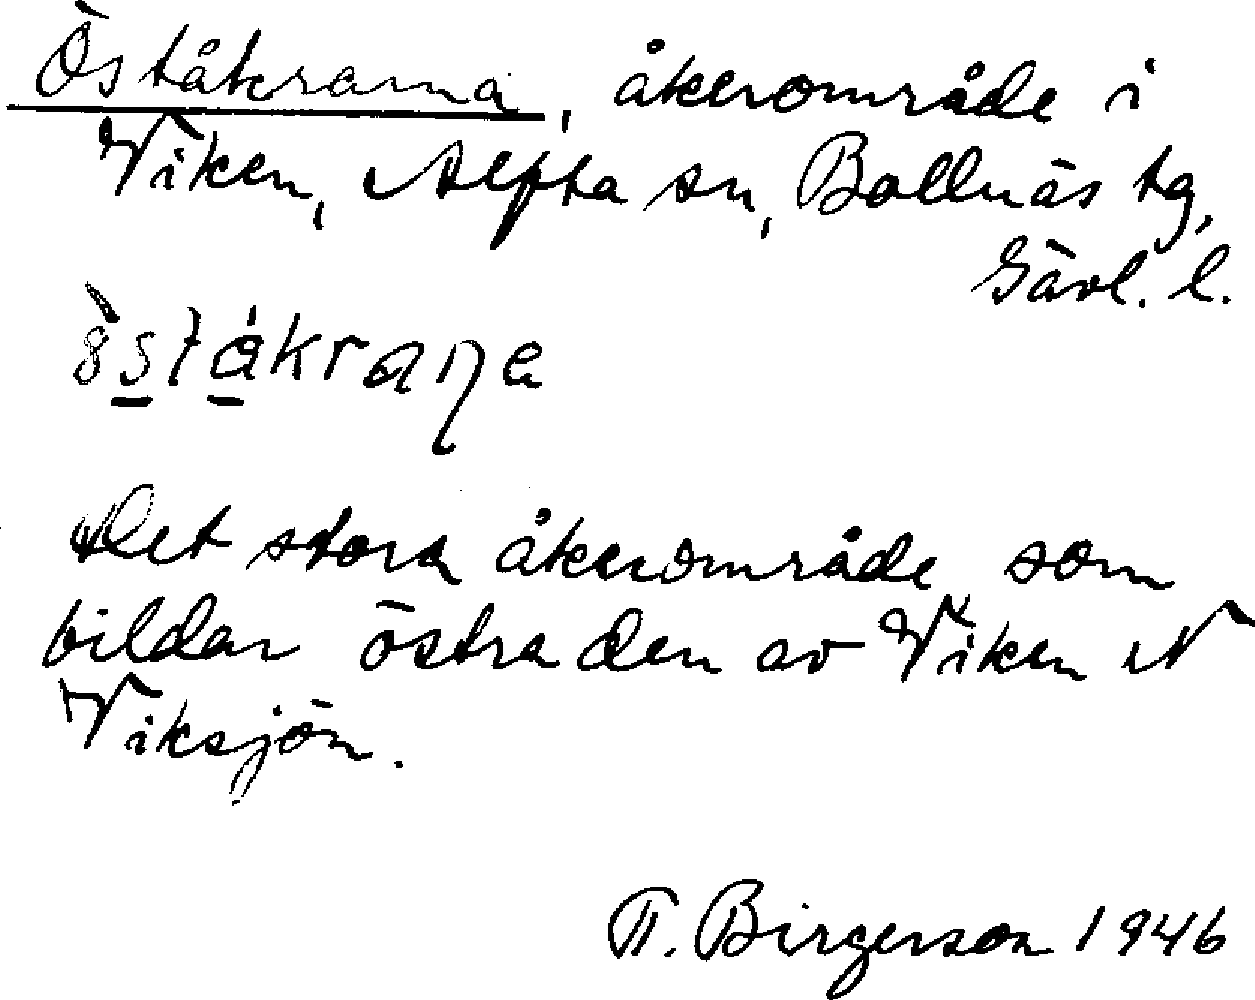 Öståkrarna, åkerområde i
Viken, Alfta sn, Bollnäs tg,
Gävl. l.
Det stora åkerområde som
bildar östra den av Viken N
Viksjön.
T. Birgerson 1946